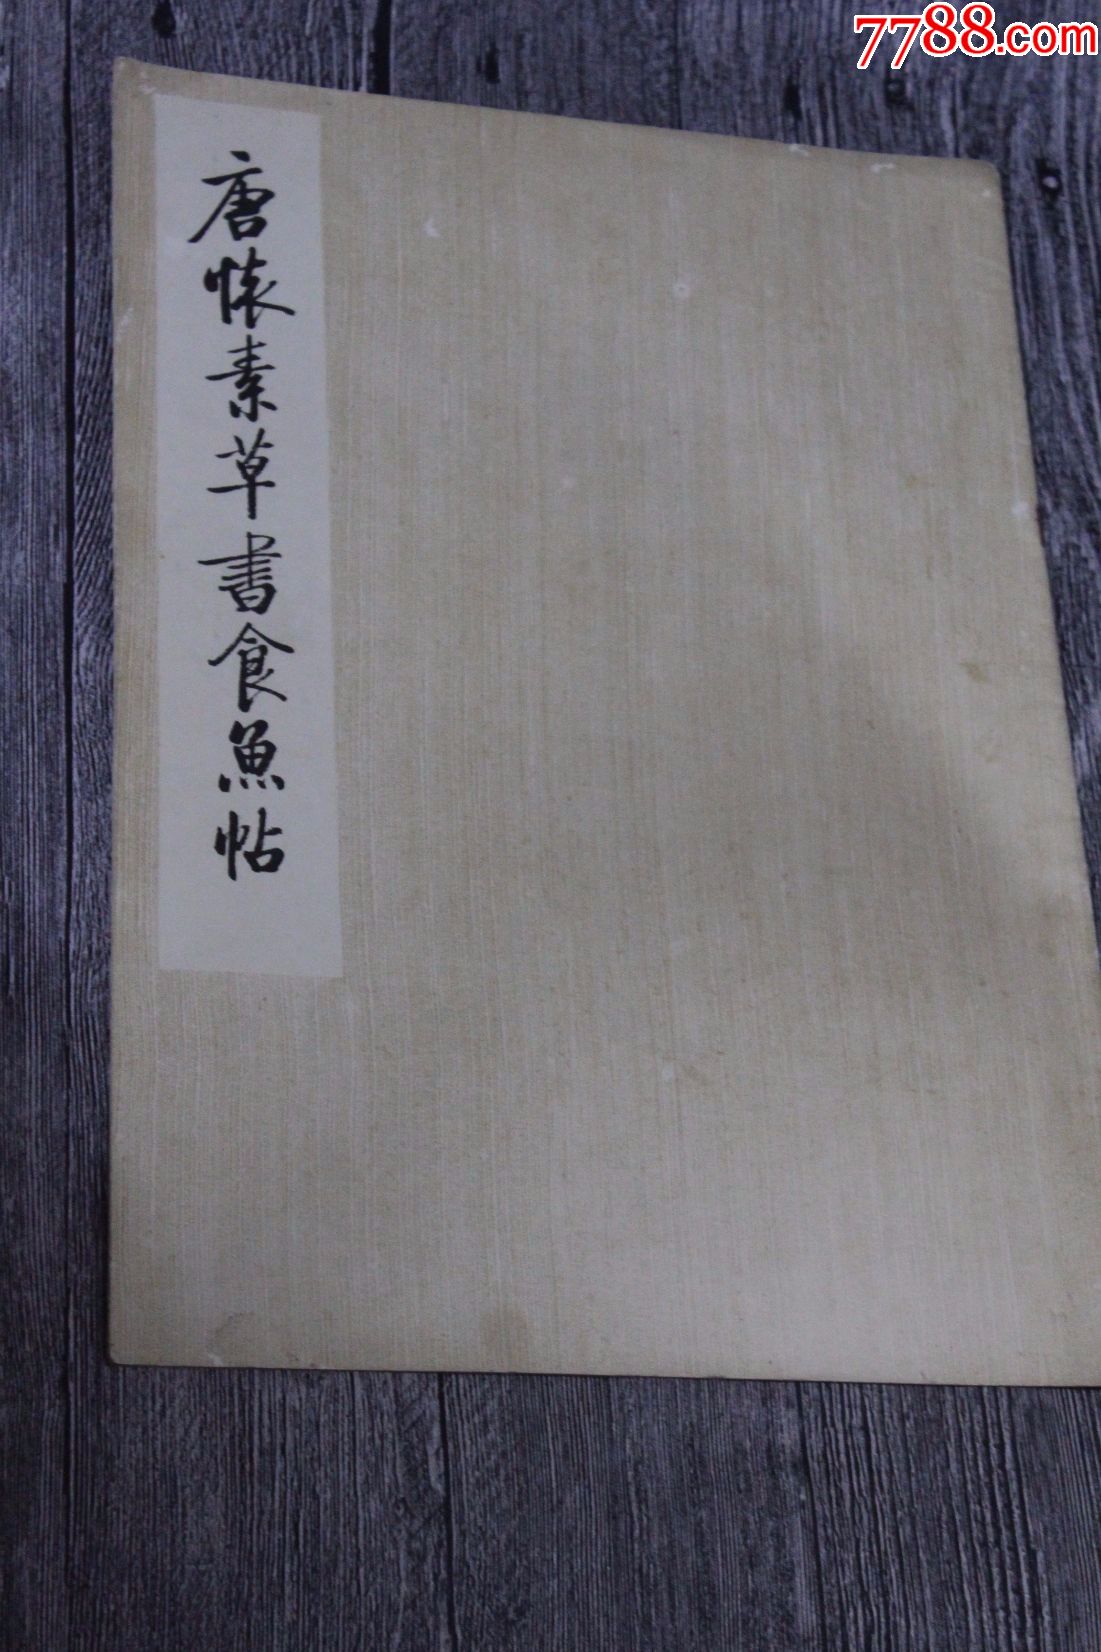 7788.com
唐懷素草書食魚帖